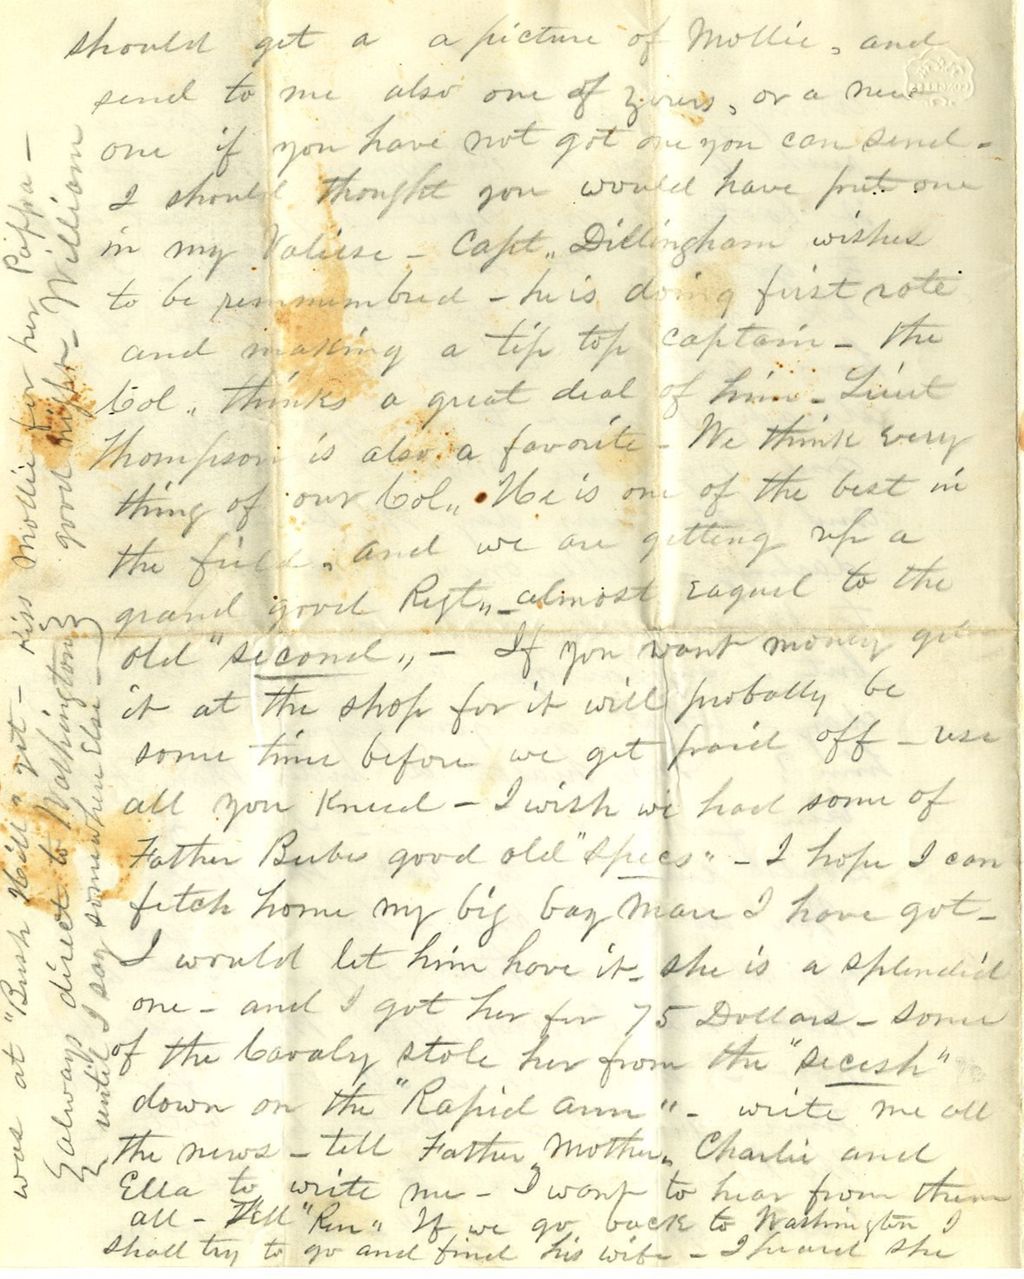 should get a a picture of Mollie, and
send to me also one of yours, or a new
one if you have not got one you can send -
I should thought you would have put one
in my Valiese - Capt,, Dillingham wishes
to be remmumbred - he is doing first rate
and making a tip top captain - the
Col,, thinks a great deal of him - Lieut
Thompson is also a favorite - We think every
thing of our Col,, He is one of the best in
the field, and we are getting up a
grand good Regt,, - almost eaquel to the
old "second,, - If you want money get
it at the shop for it will probally be
some time before we get paid off - use
all you Kneed - I wish we had some of
Father good old "specs" - I hope I can
fetch home my big bay Mare I have got -
I would let him have it - she is a splendid
one - and I got her for 75 Dollars - some
of the Cavaly stole her from the "secesh"
down on the "Rapid ann" - write me all
the news - tell Father, Mother, Charlie and
Ella to write me - I want to hear from them
all - Tell "Ren" If we go back to Washington I
shall try to go and find his wife - I heard she
was at "Bush Hill" yet - Kiss Mollie for her Pappa -
good - William
{always direct to Washington}
{until I say somewhere Else -}